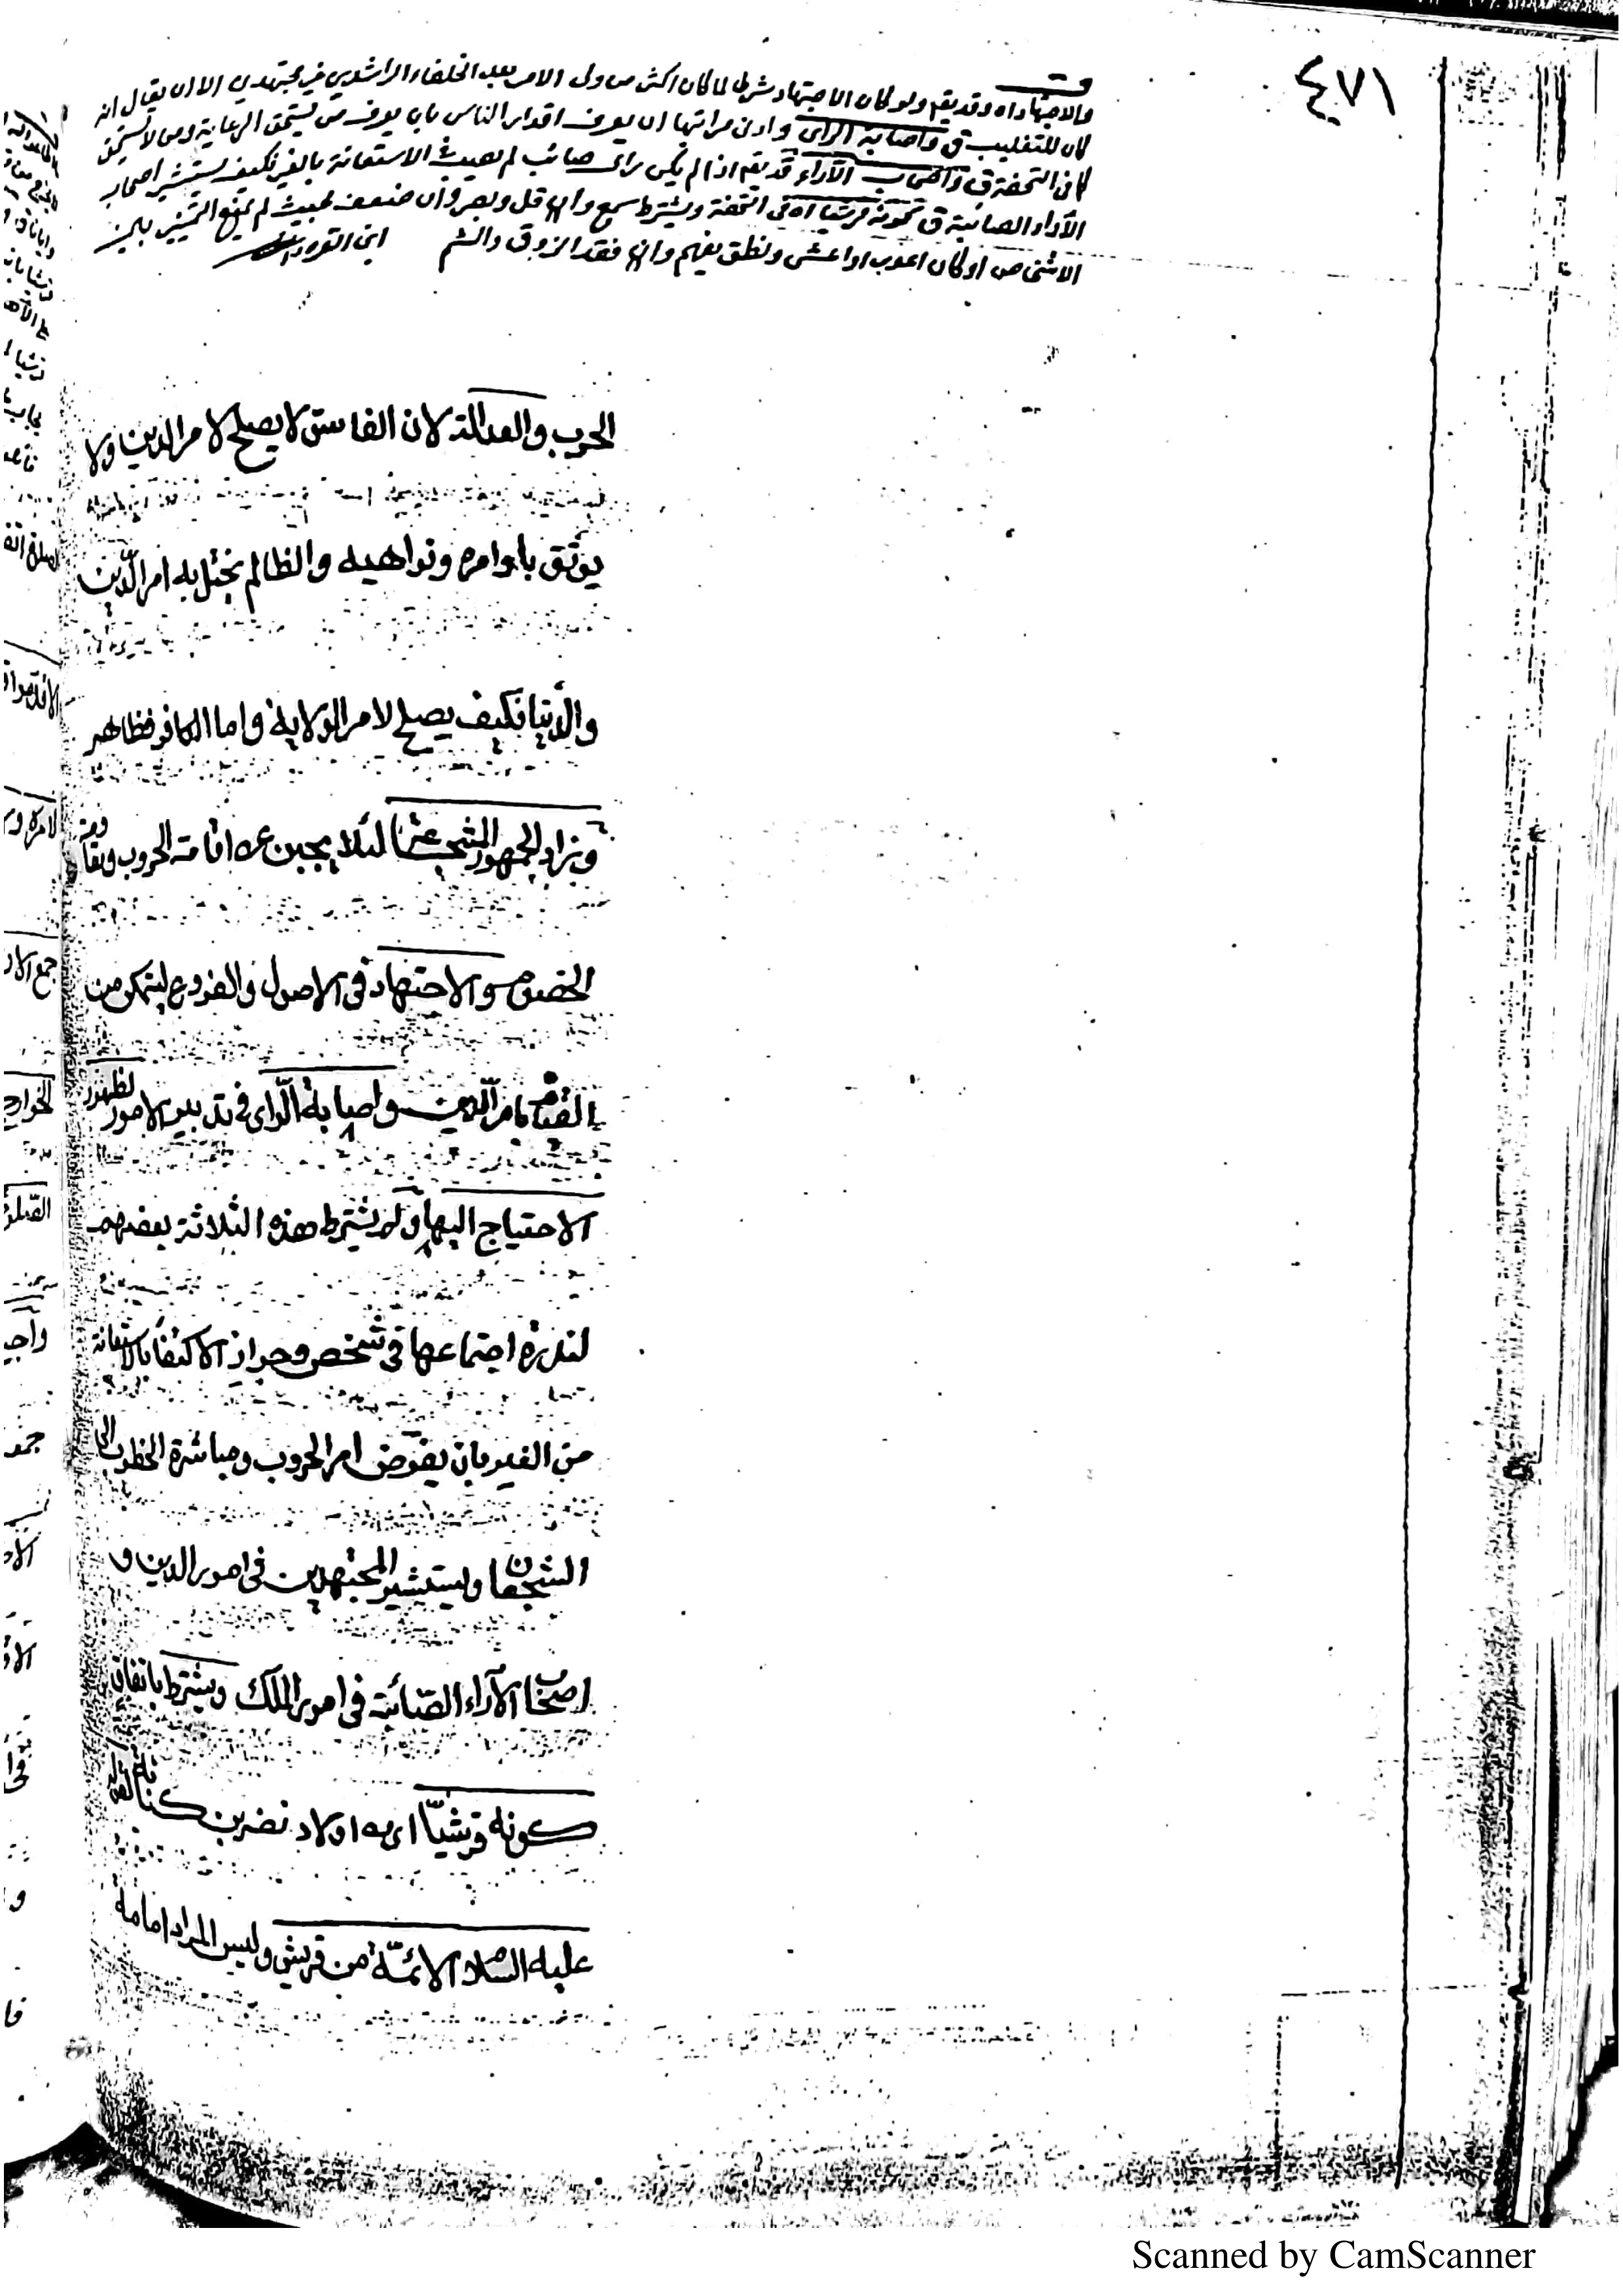 ٤٧١
والاجتهاد اه وقد يقع ولو كان الاجتهاد شرطا لما كان اكثر من ولى الامر بعد الخلفاء الراشدين غير مجتهدين الا ان يقال انه
كان للتغليب ق واصابة الراى وادنى مراتبها ان يعرف اقدار الناس بان يعرف من يستحق الرعاية ومن لا يستحق
كما فى التحفة ق واصحاب الآراء قد يقع اذا لم يكن راى صائب لم يعيب فى الاستعانة بالغير فكيف يستشير اصحاب
الآراء الصائبة ق كونه قرشيا اه فى التحفة ويشترط سمع وان قل وبصر وان ضعف بحيث لم يمنع التمييز بين
الاشخاص او كان اعور او اعشى ونطق يفهم وان فقد الذوق والشم ابن القره
الحرب والعدالة لان الفاسق لا يصلح لامر الدين ولا
يوثق باوامره ونواهيه والظالم يختل به امر الدين
والدنيا فكيف يصلح لامر الولاية واما الكافر فظاهر
وزاد الجمهور الشجاعة لئلا يجبن عن اقامة الحروب ومقاومة
الخصوم والاجتهاد فى الاصول والفروع ليتمكن من
القيام بامر الدين واصابة الراى فى تدبير الامور لظهور
الاحتياج اليها ولم يشترط هذه الثلاثة بعضهم
لندرة اجتماعها فى شخص وجواز الاكتفاء بالاستعانة
من الغير بان يفوض امر الحروب ومباشرة الخطوب الى
الشجعان ويستشير المجتهدين فى امور الدين و
اصحاب الآراء الصائبة فى امور الملك ويشترط باتفاق
كونه قرشيا اى من اولاد نضر بن كنانة لقوله
عليه السلام الائمة من قريش وليس المراد امامة
Scanned by CamScanner